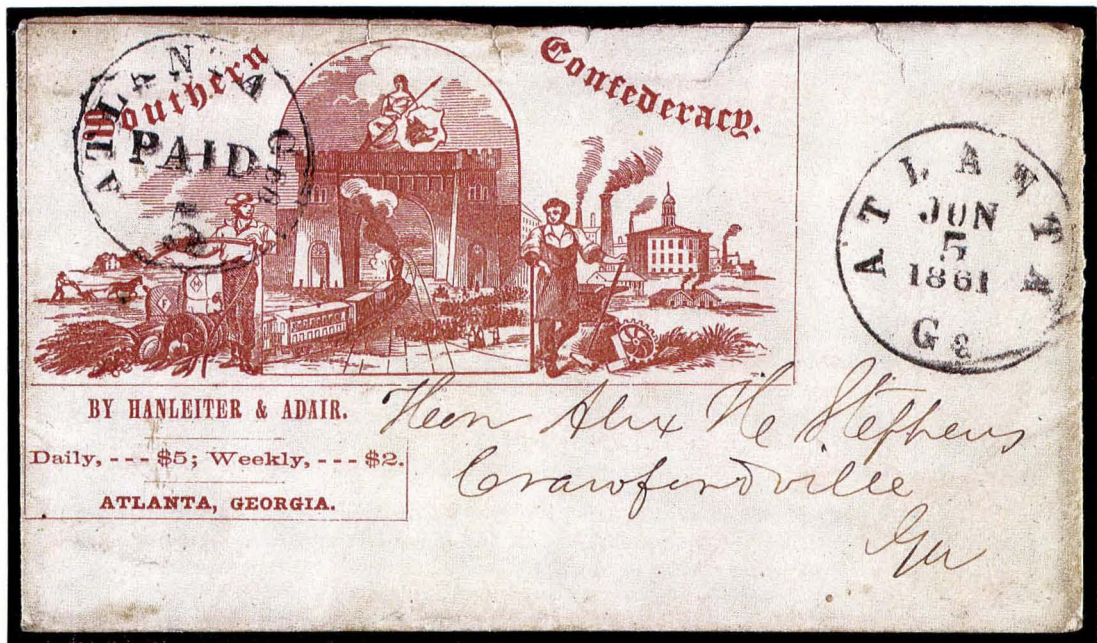 Southern Confederacy.
ATLANTA Geo
PAID
5
ATLANTA
JUN
5
1861
Ga
BY HANLEITER & ADAIR.
Daily, --- $5; Weekly, --- $2.
ATLANTA, GEORGIA.
Hon Alex H Stephens
Crawfordville
Ga